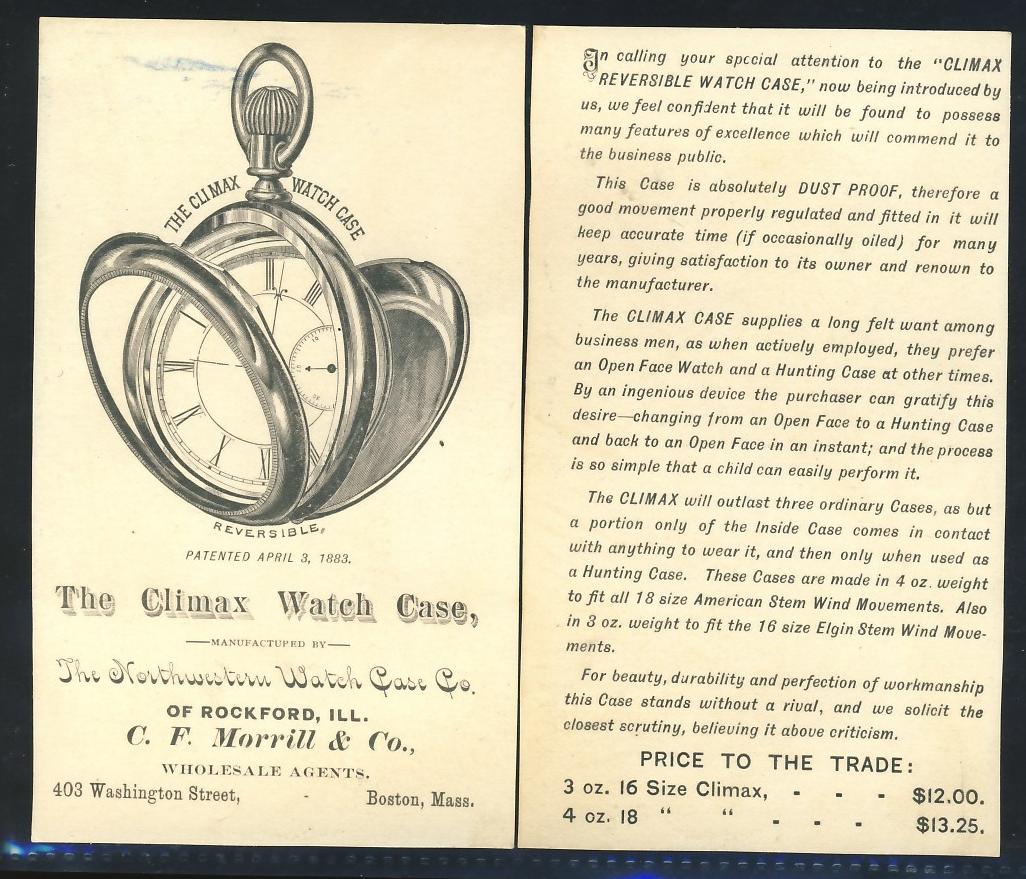 THE CLIMAX WATCH CASE
REVERSIBLE.
PATENTED APRIL 3, 1883.
The Climax Watch Case,
MANUFACTUPED BY
The Northwestern Watch Case Co.
OF ROCKFORD, ILL.
C. F. Morrill & Co.,
WHOLESALE AGENTS.
403 Washington Street, - Boston, Mass.
In calling your special attention to the "CLIMAX
REVERSIBLE WATCH CASE," now being introduced by
us, we feel confident that it will be found to possess
many features of excellence which will commend it to
the business public.
This Case is absolutely DUST PROOF, therefore a
good movement properly regulated and fitted in it will
keep accurate time (if occasionally oiled) for many
years, giving satisfaction to its owner and renown to
the manufacturer.
The CLIMAX CASE supplies a long felt want among
business men, as when actively employed, they prefer
an Open Face Watch and a Hunting Case at other times.
By an ingenious device the purchaser can gratify this
desire—changing from an Open Face to a Hunting Case
and back to an Open Face in an instant; and the process
is so simple that a child can easily perform it.
The CLIMAX will outlast three ordinary Cases, as but
a portion only of the Inside Case comes in contact
with anything to wear it, and then only when used as
a Hunting Case. These Cases are made in 4 oz. weight
to fit all 18 size American Stem Wind Movements. Also
in 3 oz. weight to fit the 16 size Elgin Stem Wind Move-
ments.
For beauty, durability and perfection of workmanship
this Case stands without a rival, and we solicit the
closest scrutiny, believing it above criticism.
PRICE TO THE TRADE:
3 oz. 16 Size Climax, - - - $12.00.
4 oz. 18 " " - - - $13.25.